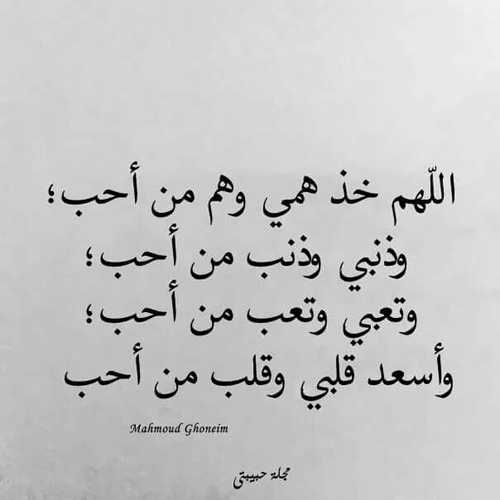 اللّهم خذ همي وهم من أحب؛
وذنبي وذنب من أحب؛
وتعبي وتعب من أحب؛
وأسعد قلبي وقلب من أحب
Mahmoud Ghoneim
مجلة حبيبتى